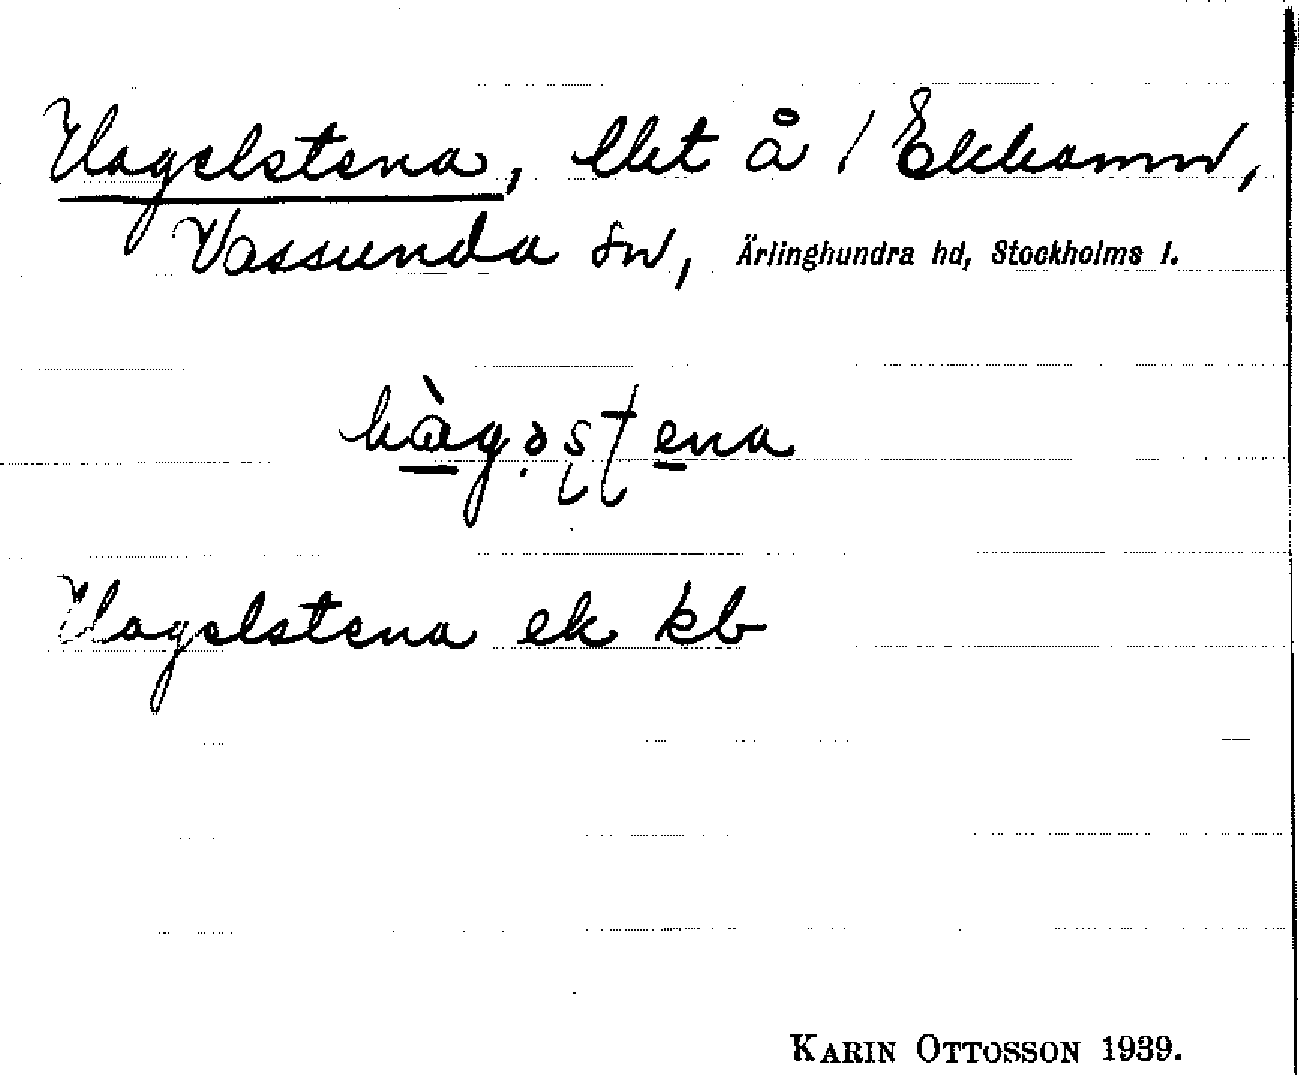 Hagelstena, llet å / Ekhamn,
Vassunda sn, Ärlinghundra hd, Stockholms l.
Hagelstena ek kb
KARIN OTTOSSON 1939.